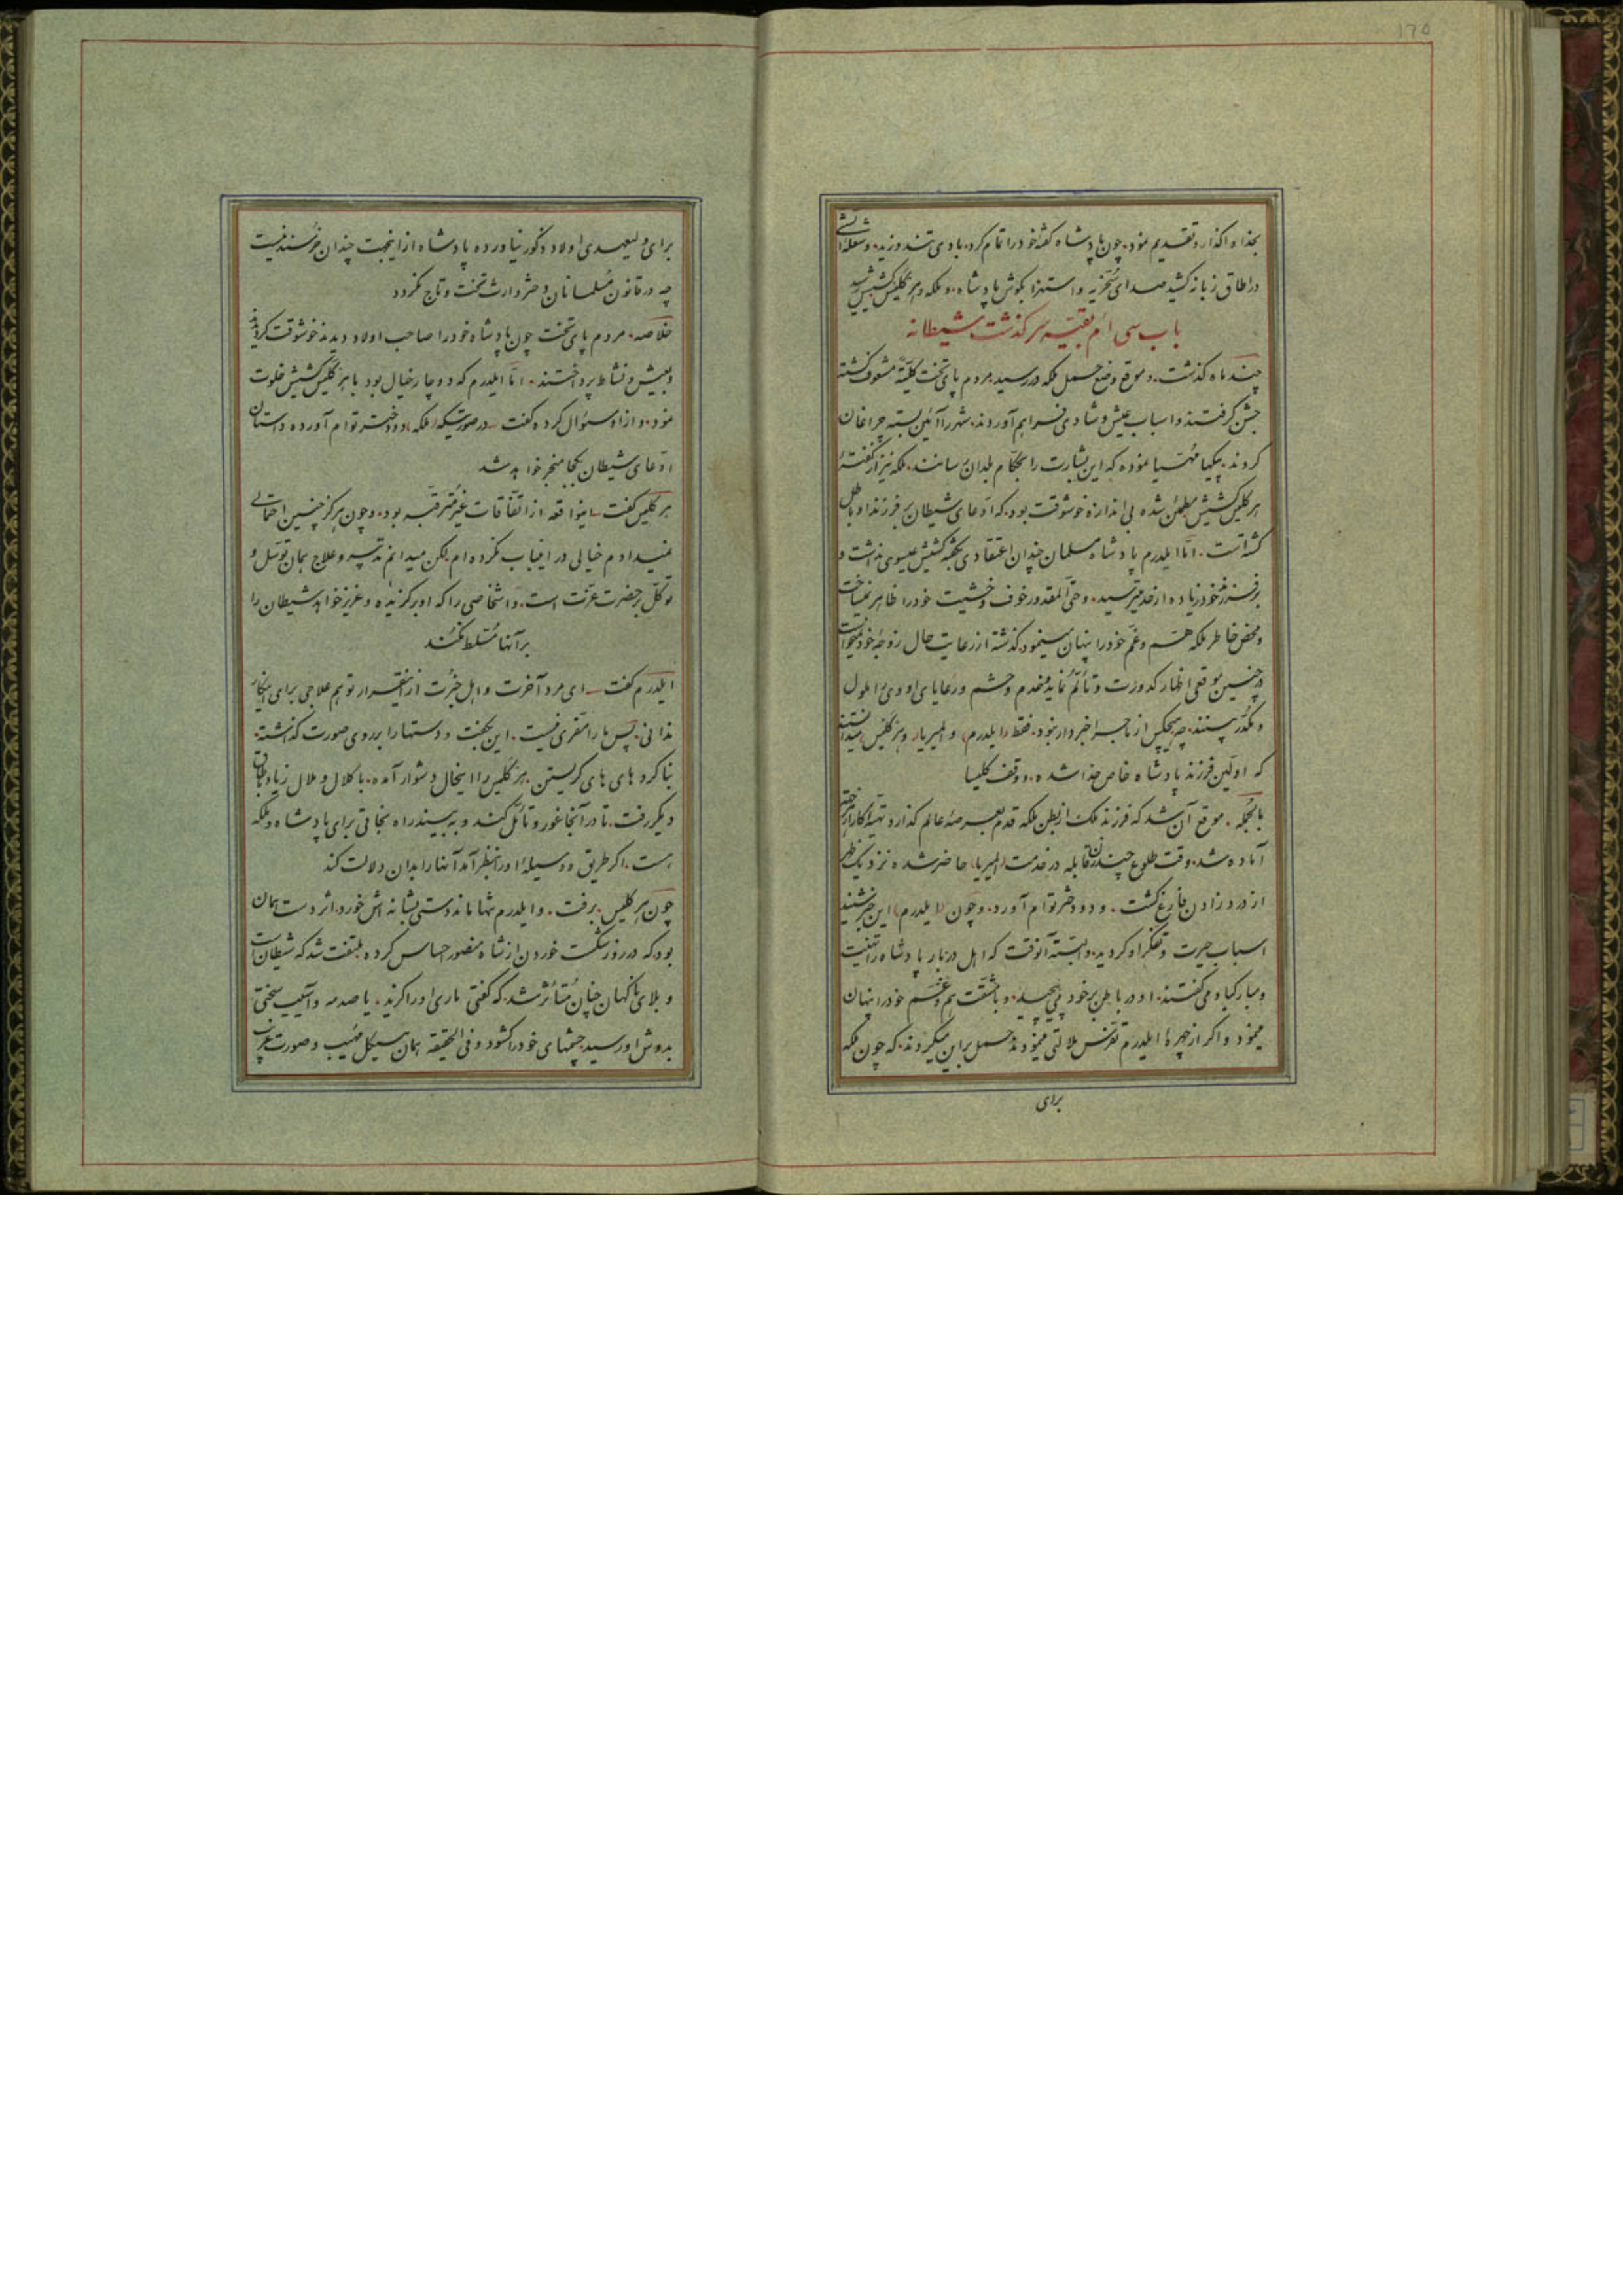 ۱۷۵
بخدا واگذار و تقدیم نمود. چون پادشاه گفتهٔ خود را تمام کرد. بادی تند وزید. و شعلهٔ آتشی
در اطاق زبانه کشید صدای سخریه و استهزا بگوش پادشاه. و ملکه و هر کلیس کشیش رسید
باب سی ام بقیّه سر گذشت شیطانه
چند ماه گذشت. و موقع وضع حمل ملکه در رسید مردم پای تخت کلیّةً مشعوف گشته
جشن گرفتند و اسباب عیش و شادی فراهم آوردند. شهر را آئین بسته چراغان
کردند. پیکها مهیّا نموده که این بشارت را بحکّام بلدان رسانند. ملکه نیز از گفتهٔ
هر کلیس کشیش مطمئن شده بی اندازه خوشوقت بود. که ادّعای شیطان بر فرزند او باطل
گشته است. امّا ایلدرم پادشاه مسلمان چندان اعتقادی بگفتهٔ کشیش عیسوی نداشت و
بر فرزند خود زیاده از حد میترسید. و حتّی المقدور خوف و خشیت خود را ظاهر نمیساخت
و محض خاطر ملکه همّ و غمّ خود را پنهان مینمود. گذشته از رعایت حال زوجهٔ خود نمیخواست
در چنین موقعی اظهار کدورت و تألّم نماید و خدم و حشم و رعایای او وی را ملول
و مکدّر بینند. چه هیچکس از ماجرا خبردار نبود. فقط (ایلدرم) و المیریا. و هر کلیس میدانستند
که اولین فرزند پادشاه خاص خدا شده. و وقف کلیسا
بالجمله. موقع آن شد که فرزند ملک از بطن ملکه قدم بعرصهٔ عالم گذارد و تهیّهٔ کار از هر جهة
آماده شد. وقت طلوع چند زن قابله در خدمت (المیریا) حاضر شده نزدیک ظهر
از درد زادن فارغ گشت. و دو دختر توأم آورد. و چون (ایلدرم) این خبر شنید
اسباب حیرت و تفکّر او گردید. و البتّه آنوقت که اهل دربار پادشاه را تهنیت
و مبارکباد می گفتند. او در باطن بر خود می پیچید. و بمشقّت همّ و غم خود را پنهان
مینمود و اگر از چهرهٔ ایلدرم تفرّس ملالتی مینمودند حمل بر این میکردند. که چون ملکه
برای
برای ولیعهدی اولاد ذکور نیاورده پادشاه از اینجهت چندان خرسند نیست
چه در قانون مسلمانان دختر وارث تخت و تاج نگردد
خلاصه. مردم پای تخت چون پادشاه خود را صاحب اولاد دیدند خوشوقت گردیدند
و بعیش و نشاط پرداختند. امّا ایلدرم که دوچار خیال بود با هر کلیس کشیش خلوت
نمود. و از او سئوال کرده گفت ـ در صورتیکه ملکه. دو دختر توأم آورده داستان
ادّعای شیطان بکجا منجر خواهد شد
هر کلیس گفت ـ اینواقعه از اتّفاقات غیر مترقّبه بود. و چون هرگز چنین احتمالی
نمیدادم خیالی در اینباب نکرده ام. لکن میدانم تدبیر و علاج همان توسّل و
توکّل بر حضرت عزّت است. و اشخاصی را که او برگزیده و عزیز خواهد شیطان را
بر آنها مسلّط نکند
ایلدرم گفت ـ ای مرد آخرت و اهل خبرت از اینقرار تو هم علاجی برای اینکار
ندانی. پس ما را مفرّی نیست. این بگفت و دستها را بر روی صورت گذاشته.
بنا کرد های های گریستن. هر کلیس را اینحال دشوار آمده. با کلال و ملال زیاد باطاق
دیگر رفت. تا در آنجا غور و تأمّل کند و به بیند راه نجاتی برای پادشاه و ملکه
هست. اگر طریق و وسیلهٔ او را بنظر آمد آنها را بدان دلالت کند
چون هر کلیس. برفت. و ایلدرم تنها ماند دستی بشانه اش خورد. اثر دست همان
بود. که در روز شکست خوردن از شاه منصور احساس کرده ملتفت شد که شیطان است
و بلای ناگهان چنان متأثّر شد. که گفتی ماری او را گزید. یا صدمه و آسیب سختی
بدوش او رسید چشمهای خود را گشود و فی الحقیقه همان هیکل مهیب و صورت غریب